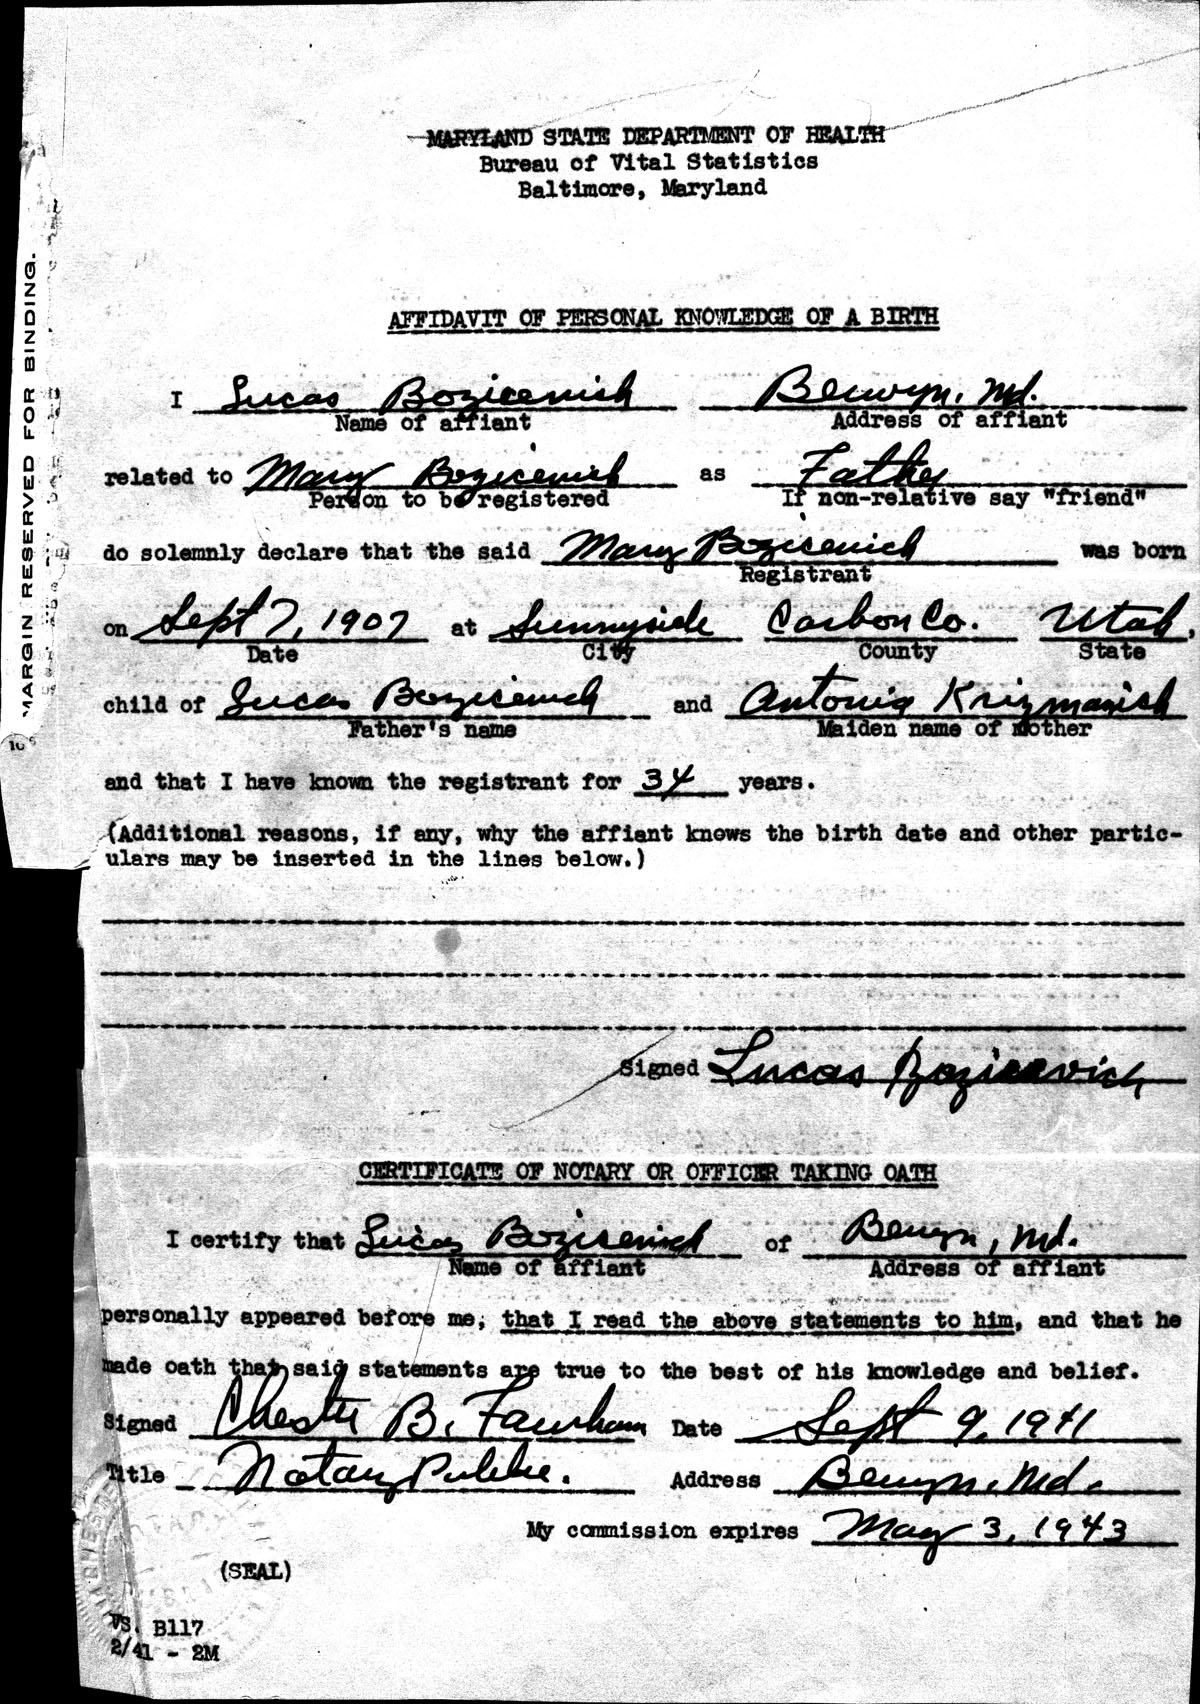 MARYLAND STATE DEPARTMENT OF HEALTH
Bureau of Vital Statistics
Baltimore, Maryland
MARGIN RESERVED FOR BINDING.
AFFIDAVIT OF PERSONAL KNOWLEDGE OF A BIRTH
I Lucas Bozicevich Berwyn, Md.
Name of affiant Address of affiant
related to Mary Bozicevich as Father
Person to be registered If non-relative say "friend"
do solemnly declare that the said Mary Bozicevich was born
Registrant
on Sept 7, 1907 at Sunnyside Carbon Co. Utah,
Date City County State
child of Lucas Bozicevich and Antonia Krizmanich
Father's name Maiden name of mother
and that I have known the registrant for 34 years.
(Additional reasons, if any, why the affiant knows the birth date and other partic-
ulars may be inserted in the lines below.)
Signed Lucas Bozicevich
CERTIFICATE OF NOTARY OR OFFICER TAKING OATH
I certify that Lucas Bozicevich of Berwyn, Md.
Name of affiant Address of affiant
personally appeared before me, that I read the above statements to him, and that he
made oath that said statements are true to the best of his knowledge and belief.
Signed Chester B. Date Sept 9, 1941
Title Notary Public. Address Berwyn, Md.
My commission expires May 3, 1943
(SEAL)
VS. B117
2/41 - 2M